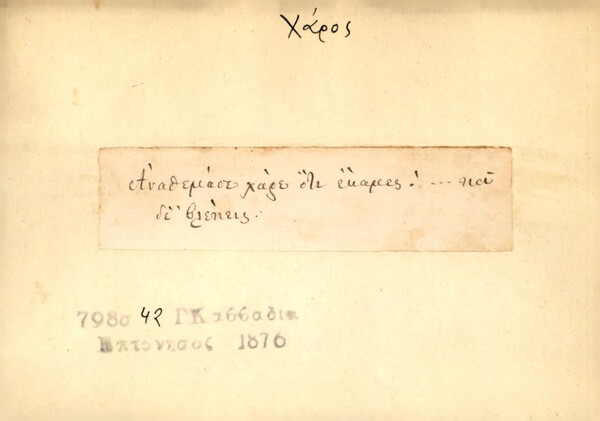 Χάρος
Ἀναθεμάσε χάρε ὅτι ἔκαμες! ... καὶ
δὲ βλέπεις.
798σ 42 ΓΚασσαδια
Επτονησος 1876